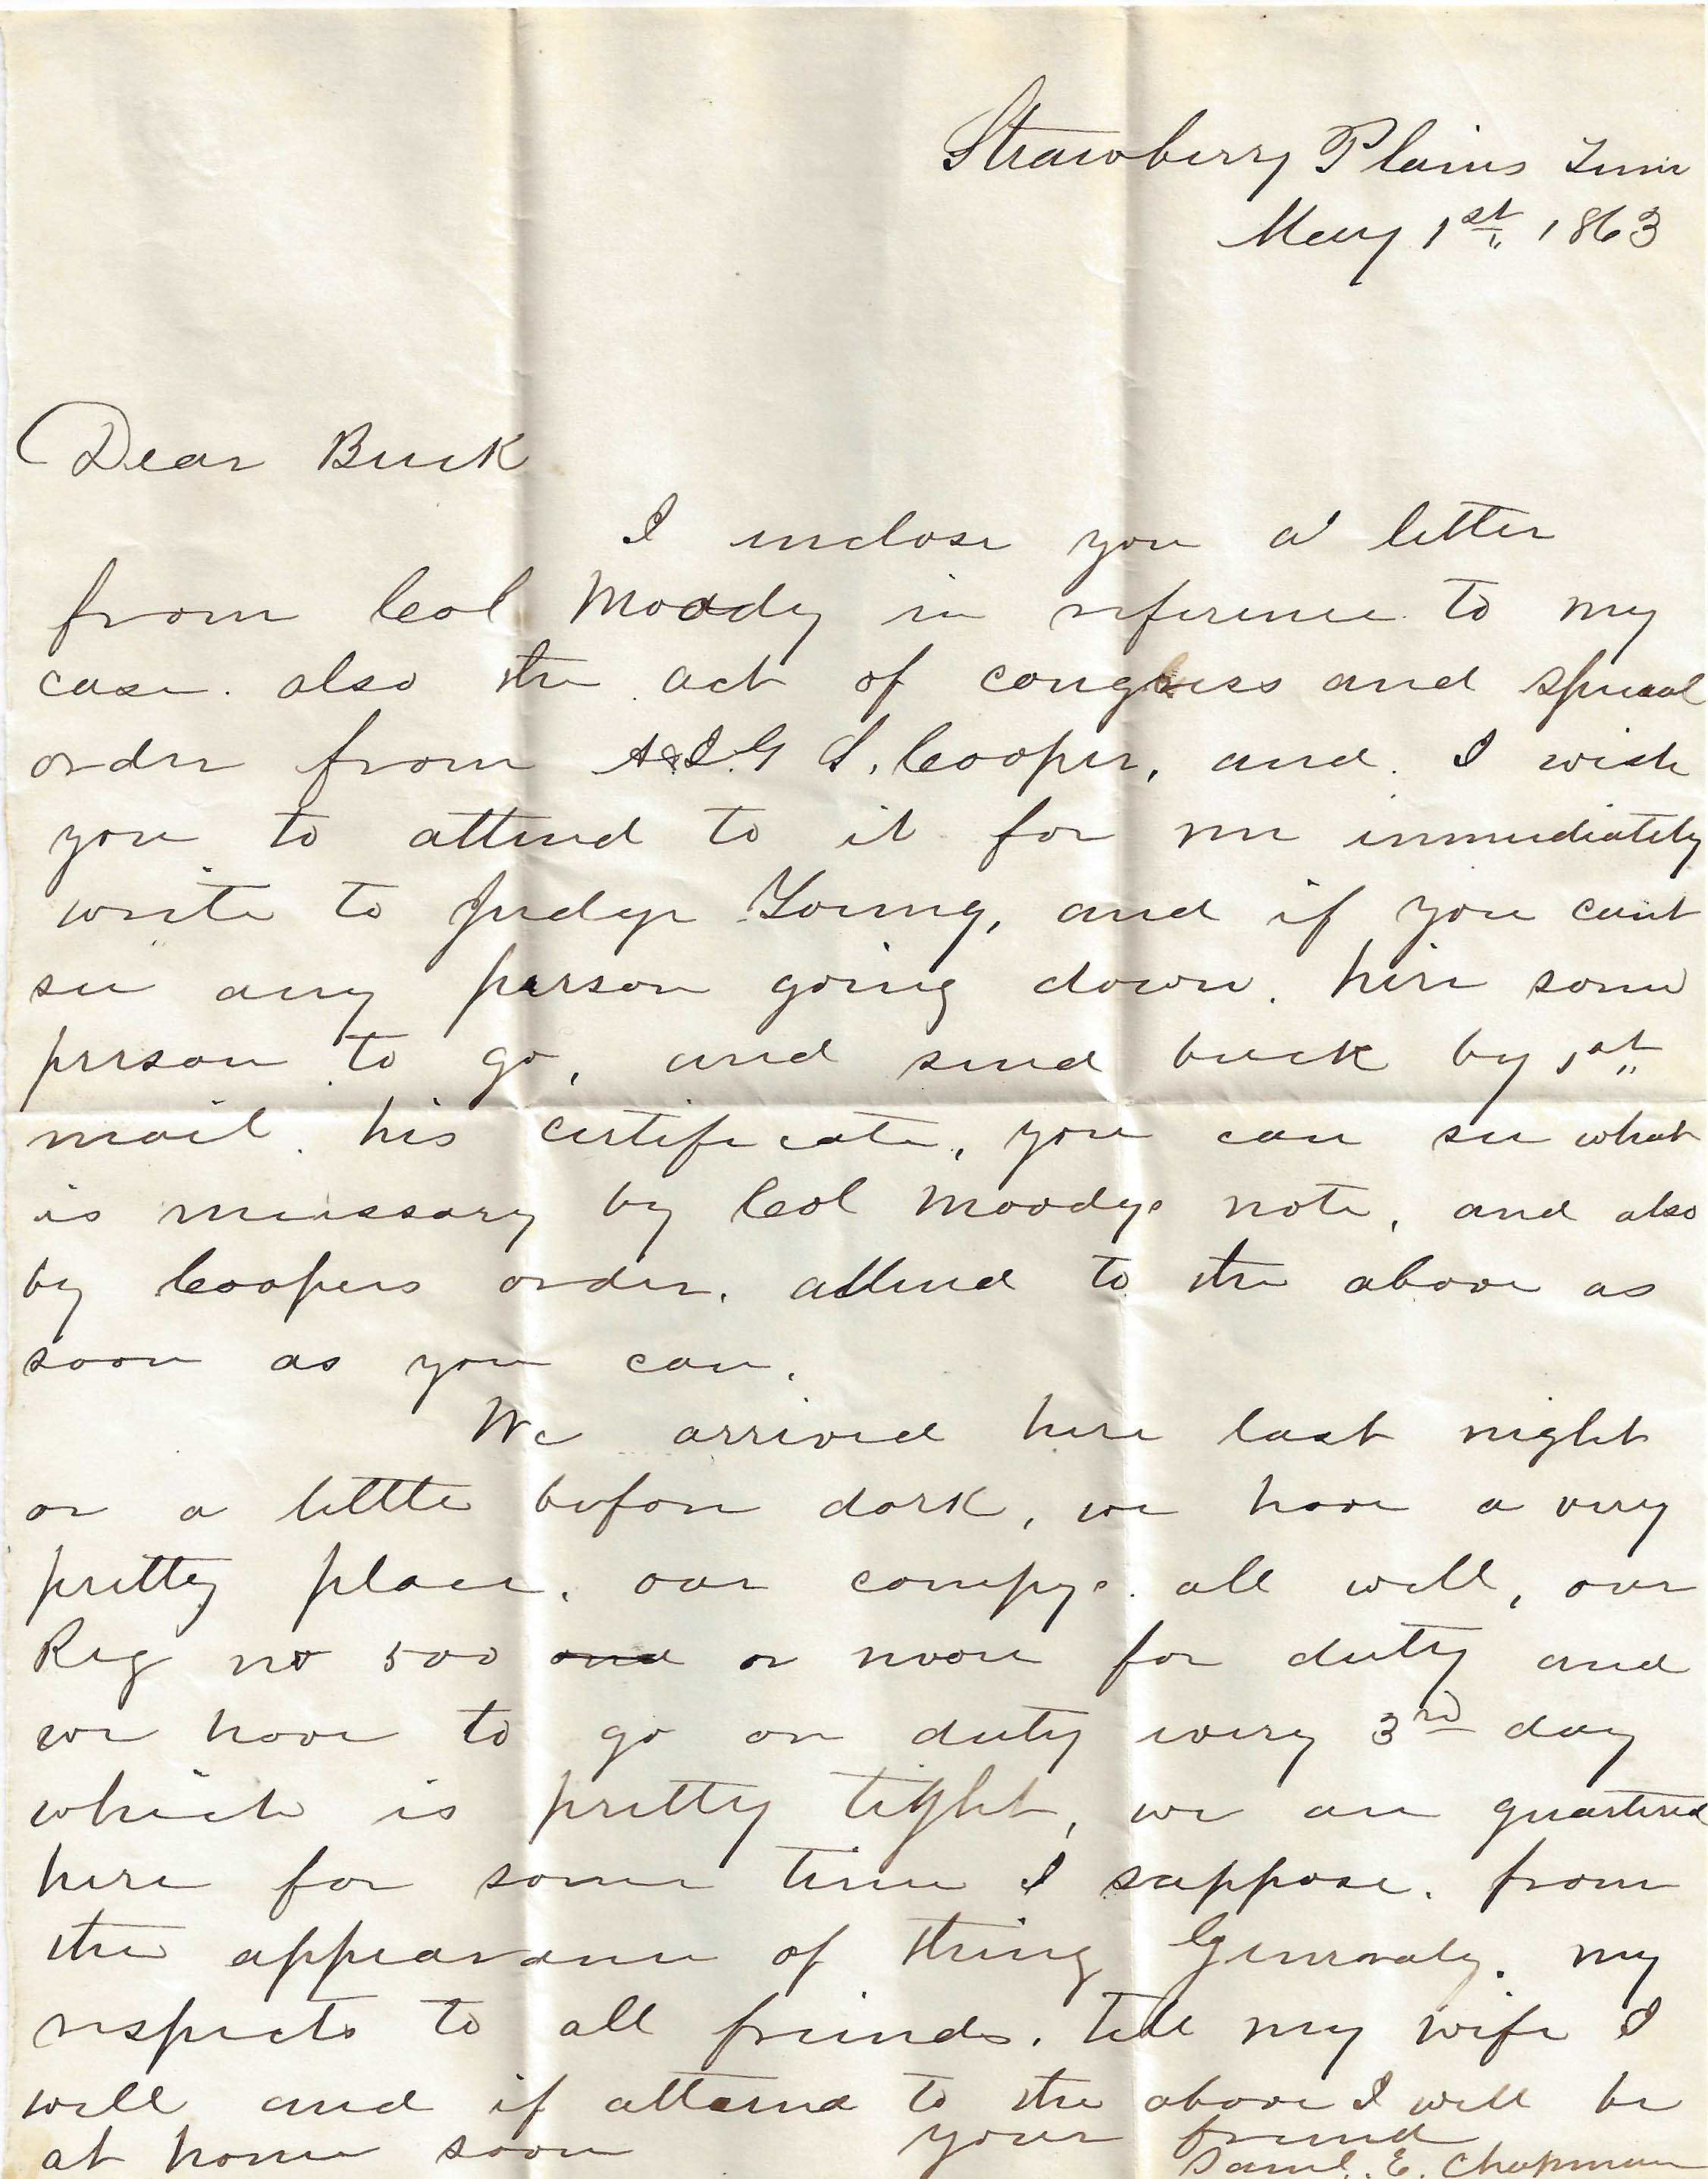 Strawberry Plains Tenn
May 1st 1863
Dear Buck
I inclose you a letter
from Col Moody in reference to my
case. also the act of congress and special
order from A&I.G S. Cooper, and. I wish
you to attend to it for me immediately
write to Judge Young, and if you cant
see any person going down. hire some
person to go, and send back by 1st
mail. his certificate, you can see what
is necessary by Col Moodys note, and also
by Coopers order. attend to the above as
soon as you can.
We arrived here last night
or a little before dark, we have a very
pretty place. our compys. all well, our
Reg no 500 and or more for duty and
we have to go on duty every 3rd day
which is pretty tight, we are quartered
here for some time I suppose. from
the appearance of thing Generaly. my
respects to all friends. tell my wife I
well and if attend to the above I will be
at home soon your friend
Saml. E. Chapman